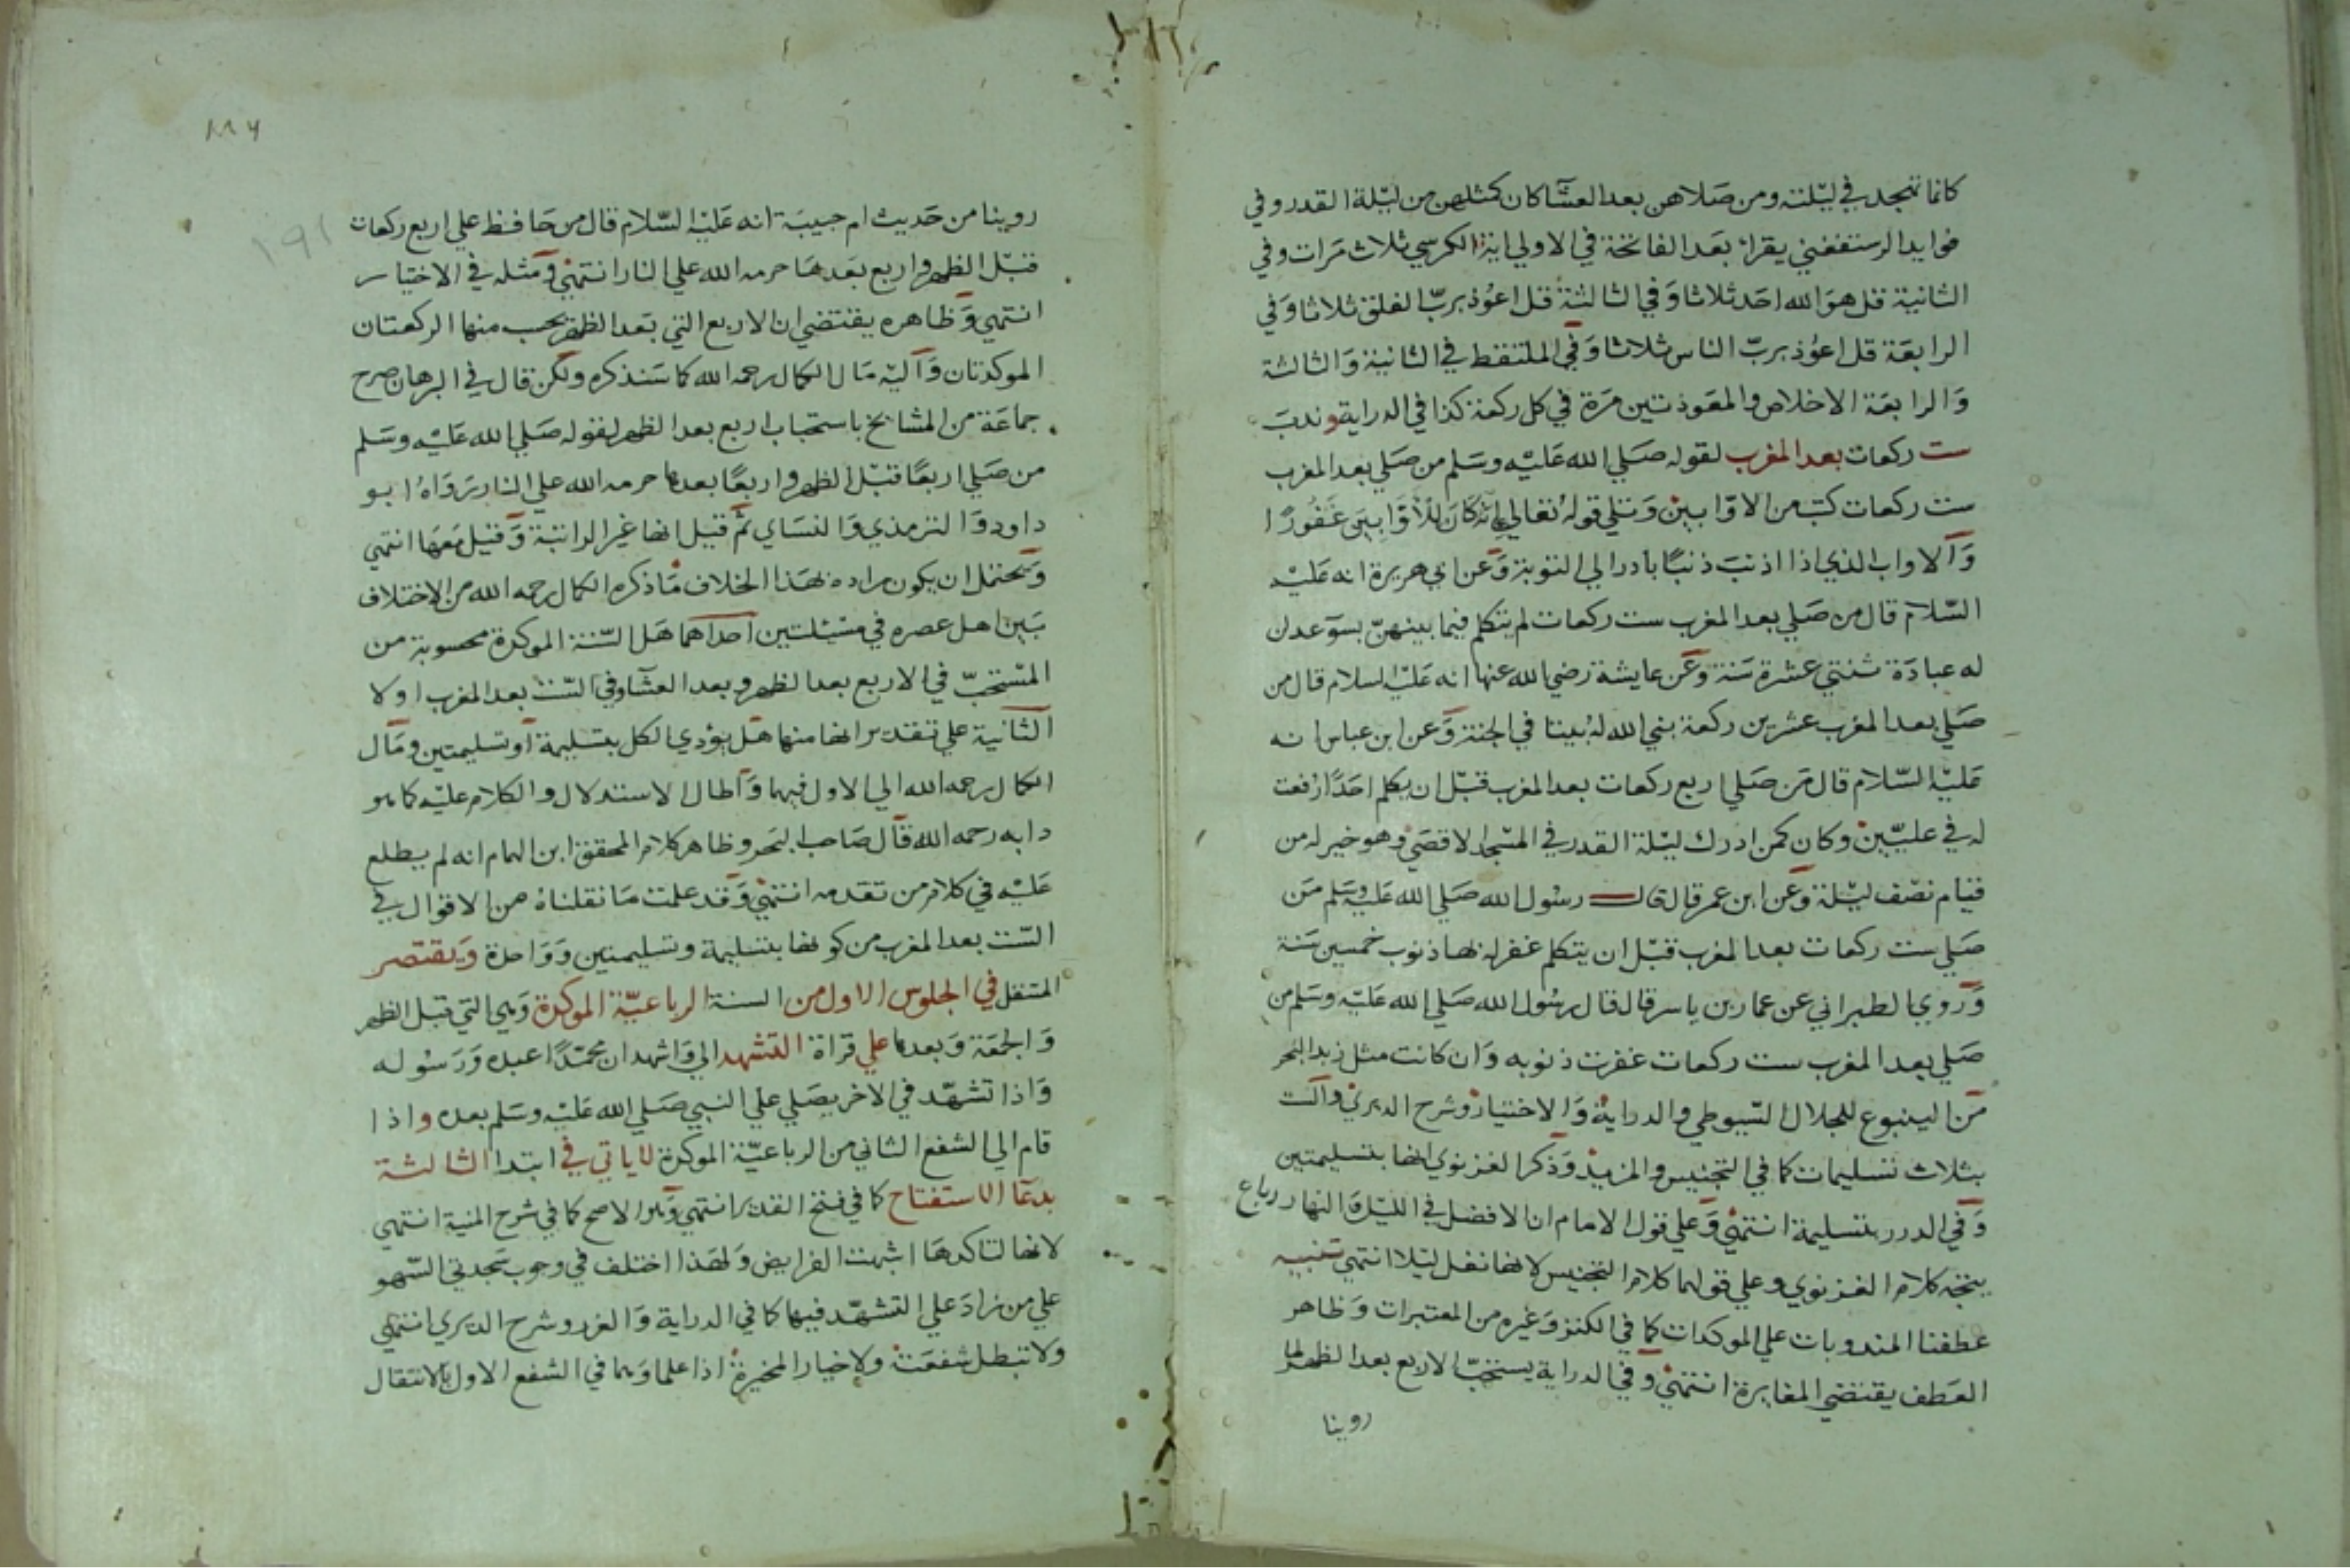 كانما تهجد في ليلته ومن صلاهن بعد العشا كان كمثلهن من ليلة القدر وفي
فوايد الرستغفني يقرا بعد الفاتحة في الاولي اية الكرسي ثلاث مرات وفي
الثانية قل هو الله احد ثلاثا وفي الثالثة قل اعوذ برب الفلق ثلاثا وفي
الرابعة قل اعوذ برب الناس ثلاثا وفي الملتقط في الثانية والثالثة
والرابعة الاخلاص والمعوذتين مرة في كل ركعة كذا في الدراية وندب
ست ركعات بعد المغرب لقوله صلي الله عليه وسلم من صلي بعد المغرب
ست ركعات كتب من الاوابين وتلي قوله تعالي انه كان للاوابين غفورا
والاواب الذي اذا اذنب ذنبا بادر الي التوبة وعن ابي هريرة انه عليه
السلام قال من صلي بعد المغرب ست ركعات لم يتكلم فيما بينهن بسو عدلن
له عبادة ثنتي عشرة سنة وعن عايشة رضي الله عنها انه عليه السلام قال من
صلي بعد المغرب عشرين ركعة بني الله له بيتا في الجنة وعن ابن عباس انه
عليه السلام قال من صلي اربع ركعات بعد المغرب قبل ان يكلم احدا رفعت
له في عليين وكان كمن ادرك ليلة القدر في المسجد الاقصي وهو خير له من
قيام نصف ليلة وعن ابن عمر قال قال رسول الله صلي الله عليه وسلم من
صلي ست ركعات بعد المغرب قبل ان يتكلم غفر له بها ذنوب خمسين سنة
وروي الطبراني عن عمار بن ياسر قال قال رسول الله صلي الله عليه وسلم من
صلي بعد المغرب ست ركعات غفرت ذنوبه وان كانت مثل زبد البحر
من الينبوع للجلال السيوطي والدراية والاختيار وشرح الديري والست
بثلاث تسليمات كما في التجنيس والمزيد وذكر الغزنوي انها بتسليمتين
وفي الدرر بتسليمة انتهي وعلي قول الامام ان الافضل في الليل والنهار رباع
يتجه كلام الغزنوي وعلي قولهما كلام التجنيس لانها نفل ليلا انتهي تنبيه
عطفنا المندوبات علي الموكدات كما في الكنز وغيره من المعتبرات وظاهر
العطف يقتضي المغايرة انتهي وفي الدراية يستحب الاربع بعد الظهر لما
روينا
١٨٩
١٩١
روينا من حديث ام حبيبة انه عليه السلام قال من حافظ علي اربع ركعات
قبل الظهر واربع بعدها حرمه الله علي النار انتهي ومثله في الاختيار
انتهي وظاهره يقتضي ان الاربع التي بعد الظهر يحسب منها الركعتان
الموكدتان واليه مال الكمال رحمه الله كما سنذكره ولكن قال في البرهان صرح
جماعة من المشايخ باستحباب اربع بعد الظهر لقوله صلي الله عليه وسلم
من صلي اربعا قبل الظهر واربعا بعدها حرمه الله علي النار رواه ابو
داود والترمذي والنساي ثم قيل انها غير الراتبة وقيل معها انتهي
ويحتمل ان يكون مراده بهذا الخلاف ما ذكره الكمال رحمه الله من الاختلاف
بين اهل عصره في مسئلتين احداهما هل السنة الموكدة محسوبة من
المستحب في الاربع بعد الظهر وبعد العشا وفي الست بعد المغرب او لا
الثانية علي تقدير انها منها هل يؤدي الكل بتسليمة او تسليمتين ومال
الكمال رحمه الله الي الاول فيهما واطال الاستدلال والكلام عليه كما هو
دابه رحمه الله قال صاحب البحر وظاهر كلام المحقق ابن الهمام انه لم يطلع
عليه في كلام من تقدمه انتهي وقد علمت ما نقلناه من الاقوال في
الست بعد المغرب من كونها بتسليمة وتسليمتين وواحدة ويقتصر
المتنفل في الجلوس الاول من السنة الرباعية الموكدة وهي التي قبل الظهر
والجمعة وبعدها علي قراة التشهد الي واشهد ان محمدا عبده ورسوله
واذا تشهد في الاخر يصلي علي النبي صلي الله عليه وسلم بعده واذا
قام الي الشفع الثاني من الرباعية الموكدة لا ياتي في ابتدا الثالثة
بدعا الاستفتاح كما في فتح القدير انتهي وهو الاصح كما في شرح المنية انتهي
لانها لتاكدها اشبهت الفرايض ولهذا اختلف في وجوب سجدتي السهو
علي من زاد علي التشهد فيها كما في الدراية والغرر وشرح الديري انتهي
ولا تبطل شفعته ولا خيار المخيرة اذا علما وهما في الشفع الاول بالانتقال